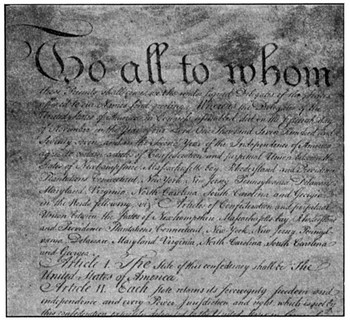 To all to whom
these Presents shall come, we the under signed Delegates of the States
affixed to our Names send greeting. Whereas the Delegates of the
United States of America in Congress assembled did on the fifteenth day
of November in the Year of our Lord One Thousand Seven Hundred and
Seventy seven, and in the Second Year of the Independence of America
agree to certain articles of Confederation and perpetual Union between the
States of Newhampshire, Massachusetts-bay, Rhodeisland and Providence
Plantations, Connecticut, New York, New Jersey, Pennsylvania, Delaware,
Maryland, Virginia, North-Carolina, South-Carolina and Georgia
in the Words following, viz. Articles of Confederation and perpetual
Union between the States of Newhampshire, Massachusetts-bay, Rhodeisland
and Providence Plantations, Connecticut, New-York, New-Jersey, Pennsyl-
vania, Delaware, Maryland, Virginia, North-Carolina, South-Carolina
and Georgia.
Article I. The Stile of this confederacy shall be "The
United States of America."
Article II. Each state retains its sovereignty, freedom and
independence, and every Power, Jurisdiction and right, which is not by
this confederation